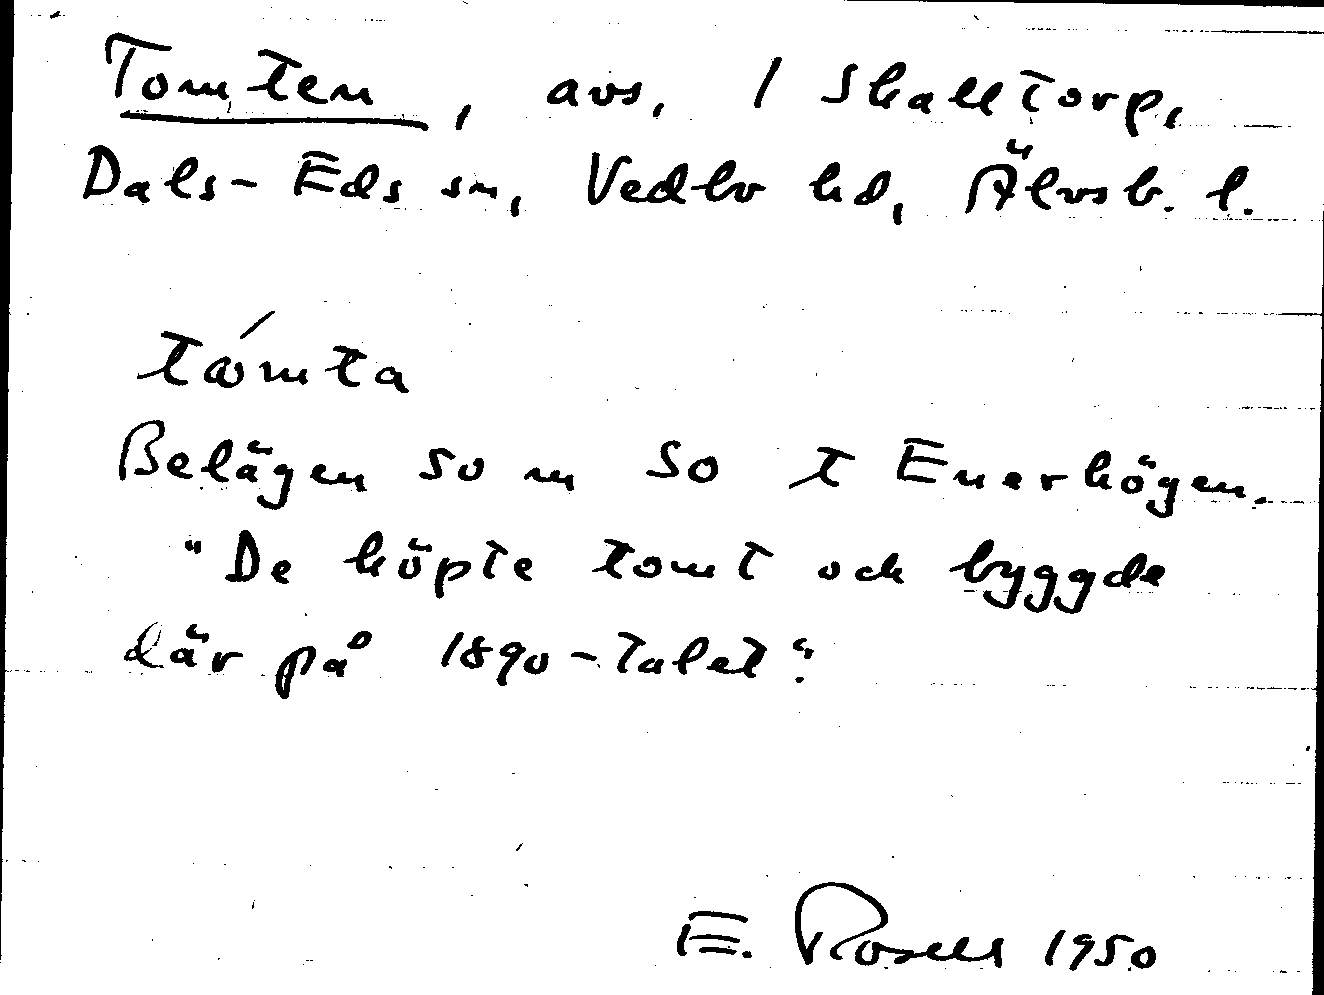 Tomten, avs, 1 Skälltorp,
Dals-Eds sn, Vedbo hd, Älvsb. l.
tómta
Belägen so m so t Enerhögen.
"De köpte tomt och byggde
där på 1890-talet".
E. Rosell 1950